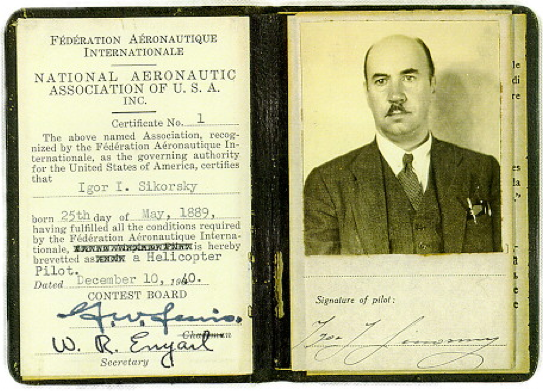 FÉDÉRATION AÉRONAUTIQUE
INTERNATIONALE
NATIONAL AERONAUTIC
ASSOCIATION OF U. S. A.
INC.
Certificate No. 1
The above named Association, recog-
nized by the Fédération Aéronautique In-
ternationale, as the governing authority
for the United States of America, certifies
that
Igor I. Sikorsky
born 25th day of May, 1889,
having fulfilled all the conditions required
by the Fédération Aéronautique Interna-
tionale, is hereby
brevetted as a Helicopter
Pilot.
Dated December 10, 1940.
CONTEST BOARD
Chairman
W. R. Enyart
Secretary
Signature of pilot: